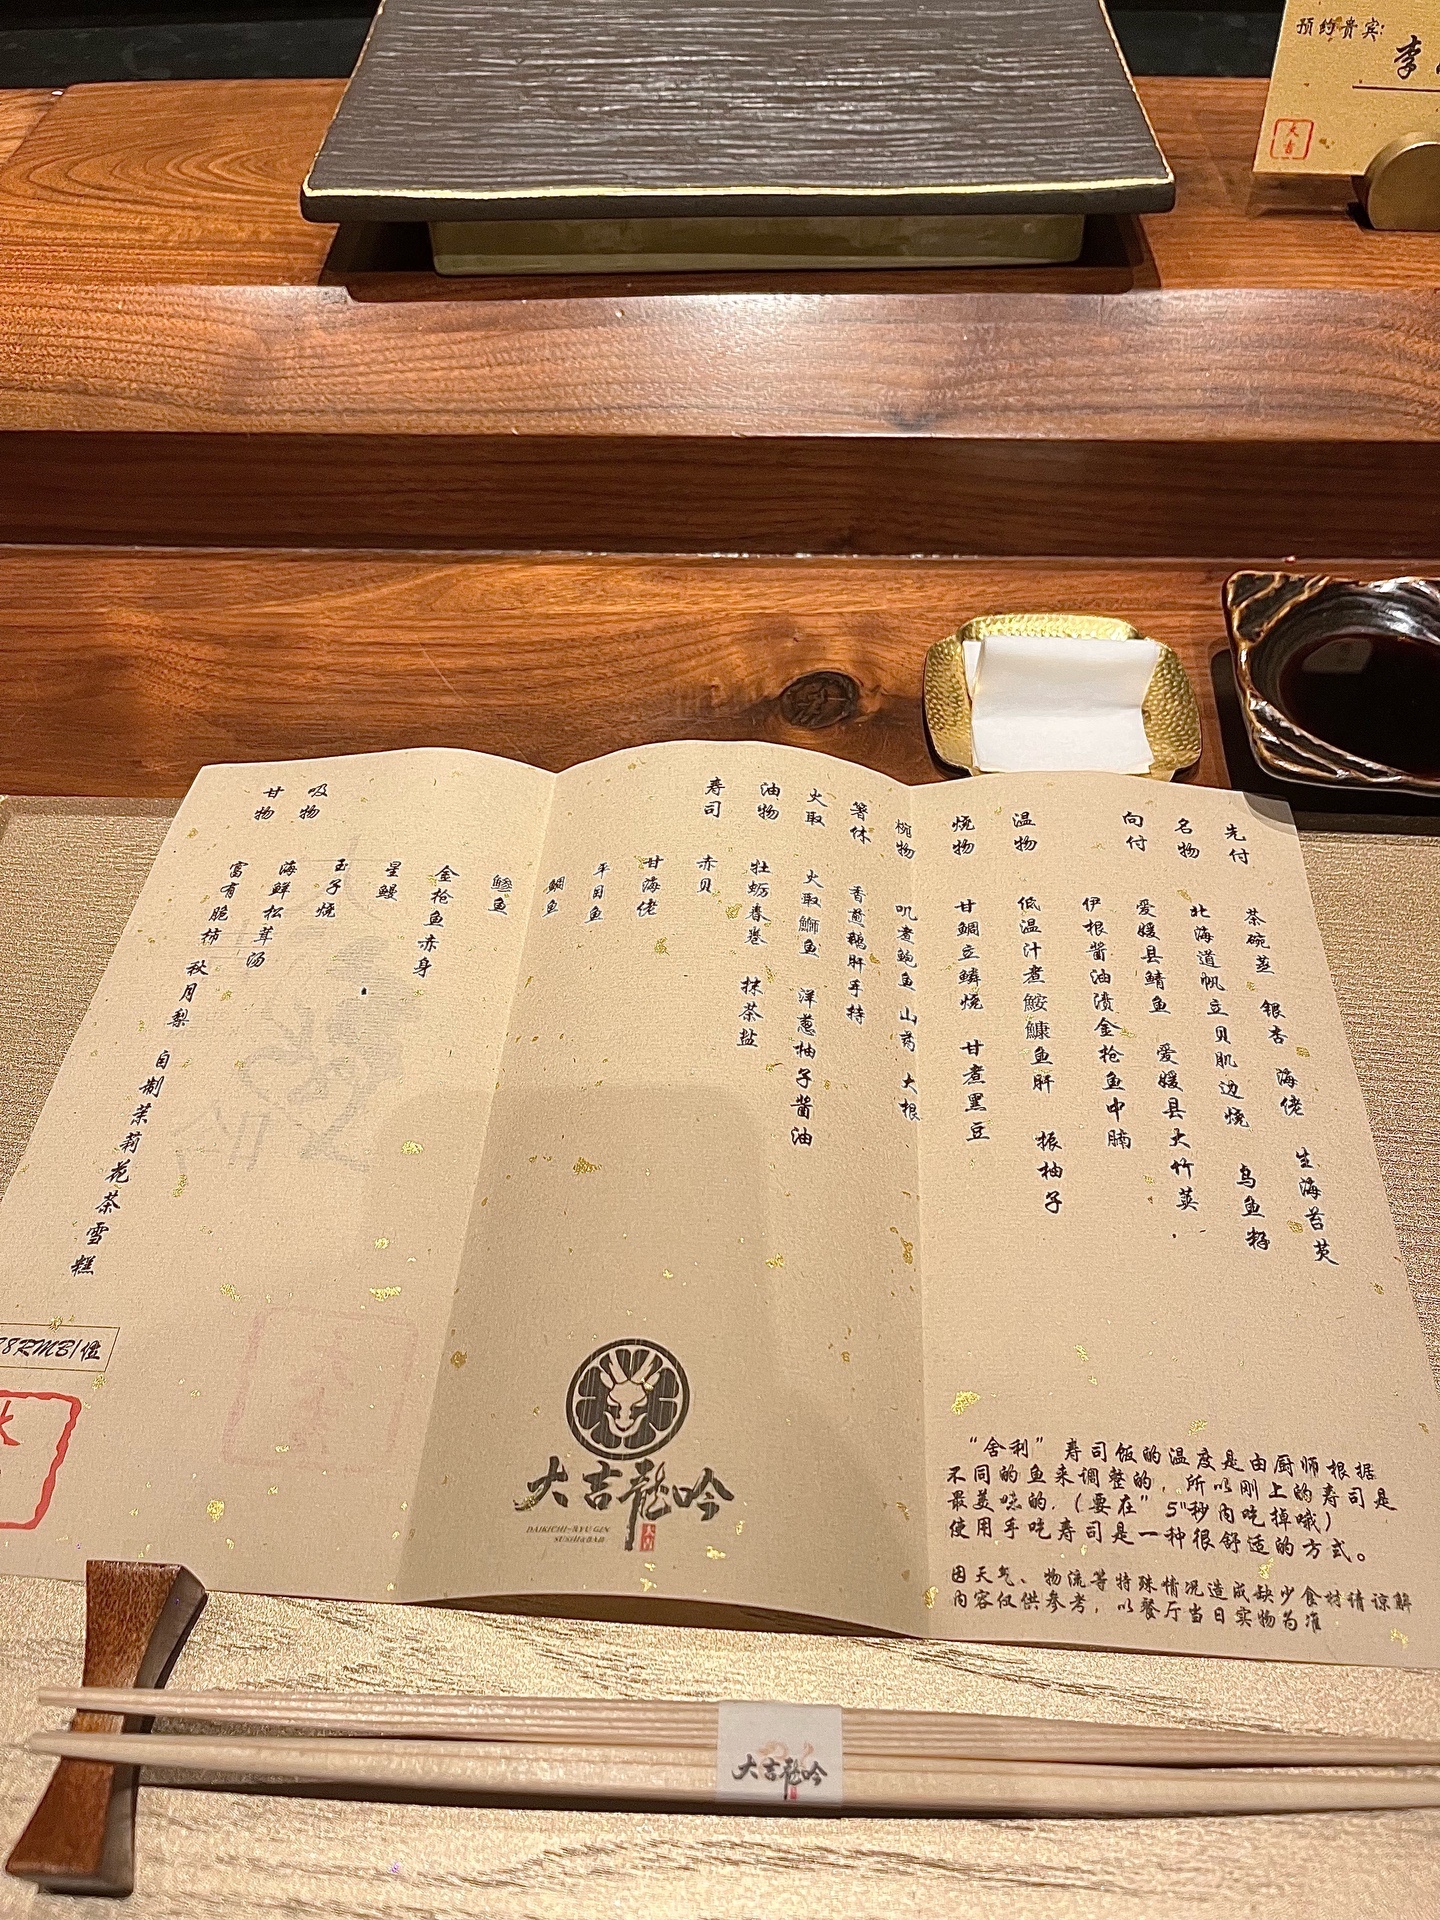 预约贵宾:
李
大吉
先付
茶碗蒸 银杏 海佬 生海苔芡
名物
北海道帆立贝肌边烧 乌鱼籽
向付
爱媛县鲭鱼 爱媛县大竹荚
伊根酱油渍金抢鱼中腩
温物
低温汁煮鮟鱇鱼肝 振柚子
烧物
甘鲷立鳞烧 甘煮黑豆
椀物
叽煮鲍鱼 山药 大根
箸休
香煎鹅肝手持
火取
火取鰤鱼 洋葱柚子酱油
油物
牡蛎春卷 抹茶盐
寿司
赤贝
甘海佬
平目鱼
鲷鱼
鲹鱼
金抢鱼赤身
星鳗
玉子烧
吸物
海鲜松茸汤
甘物
富有脆柿 秋月梨 自制茉莉花茶雪糕
8RMB/位
大
大吉龍吟
DAIKICHI-RYUGIN
SUSHI&BAR
大吉
“舍利”寿司饭的温度是由厨师根据
不同的鱼来调整的，所以刚上的寿司是
最美味的.（要在"5"秒内吃掉哦）
使用手吃寿司是一种很舒适的方式。
因天气、物流等特殊情况造成缺少食材请谅解
内容仅供参考，以餐厅当日实物为准
大吉龍吟